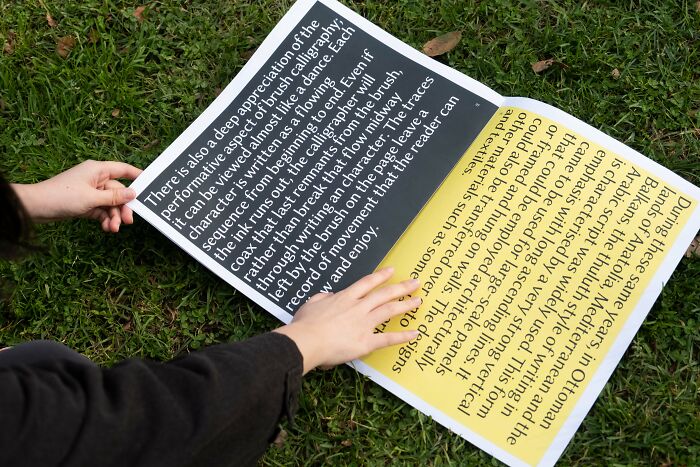 There is also a deep appreciation of the
performative aspect of brush calligraphy;
it can be viewed almost like a dance. Each
character is written as a flowing
sequence from beginning to end. Even if
the ink runs out, the calligrapher will
coax that last remnants from the brush,
rather than break that flow midway
through writing an character. The traces
left by the brush on the page leave a
record of movement that the reader can
and enjoy.
During these same years in Ottoman
lands of Anatolia, Mediterranean and the
Balkans, the thuluth style of writing in
Arabic script was widely used. This form
is characterised by a very strong vertical
emphasis with long ascending lines. It
came to be employed for large-scale panels
that could be used architecturally
or framed and hung on a wall. The designs
could also be transferred onto
other materials such as
and textiles.